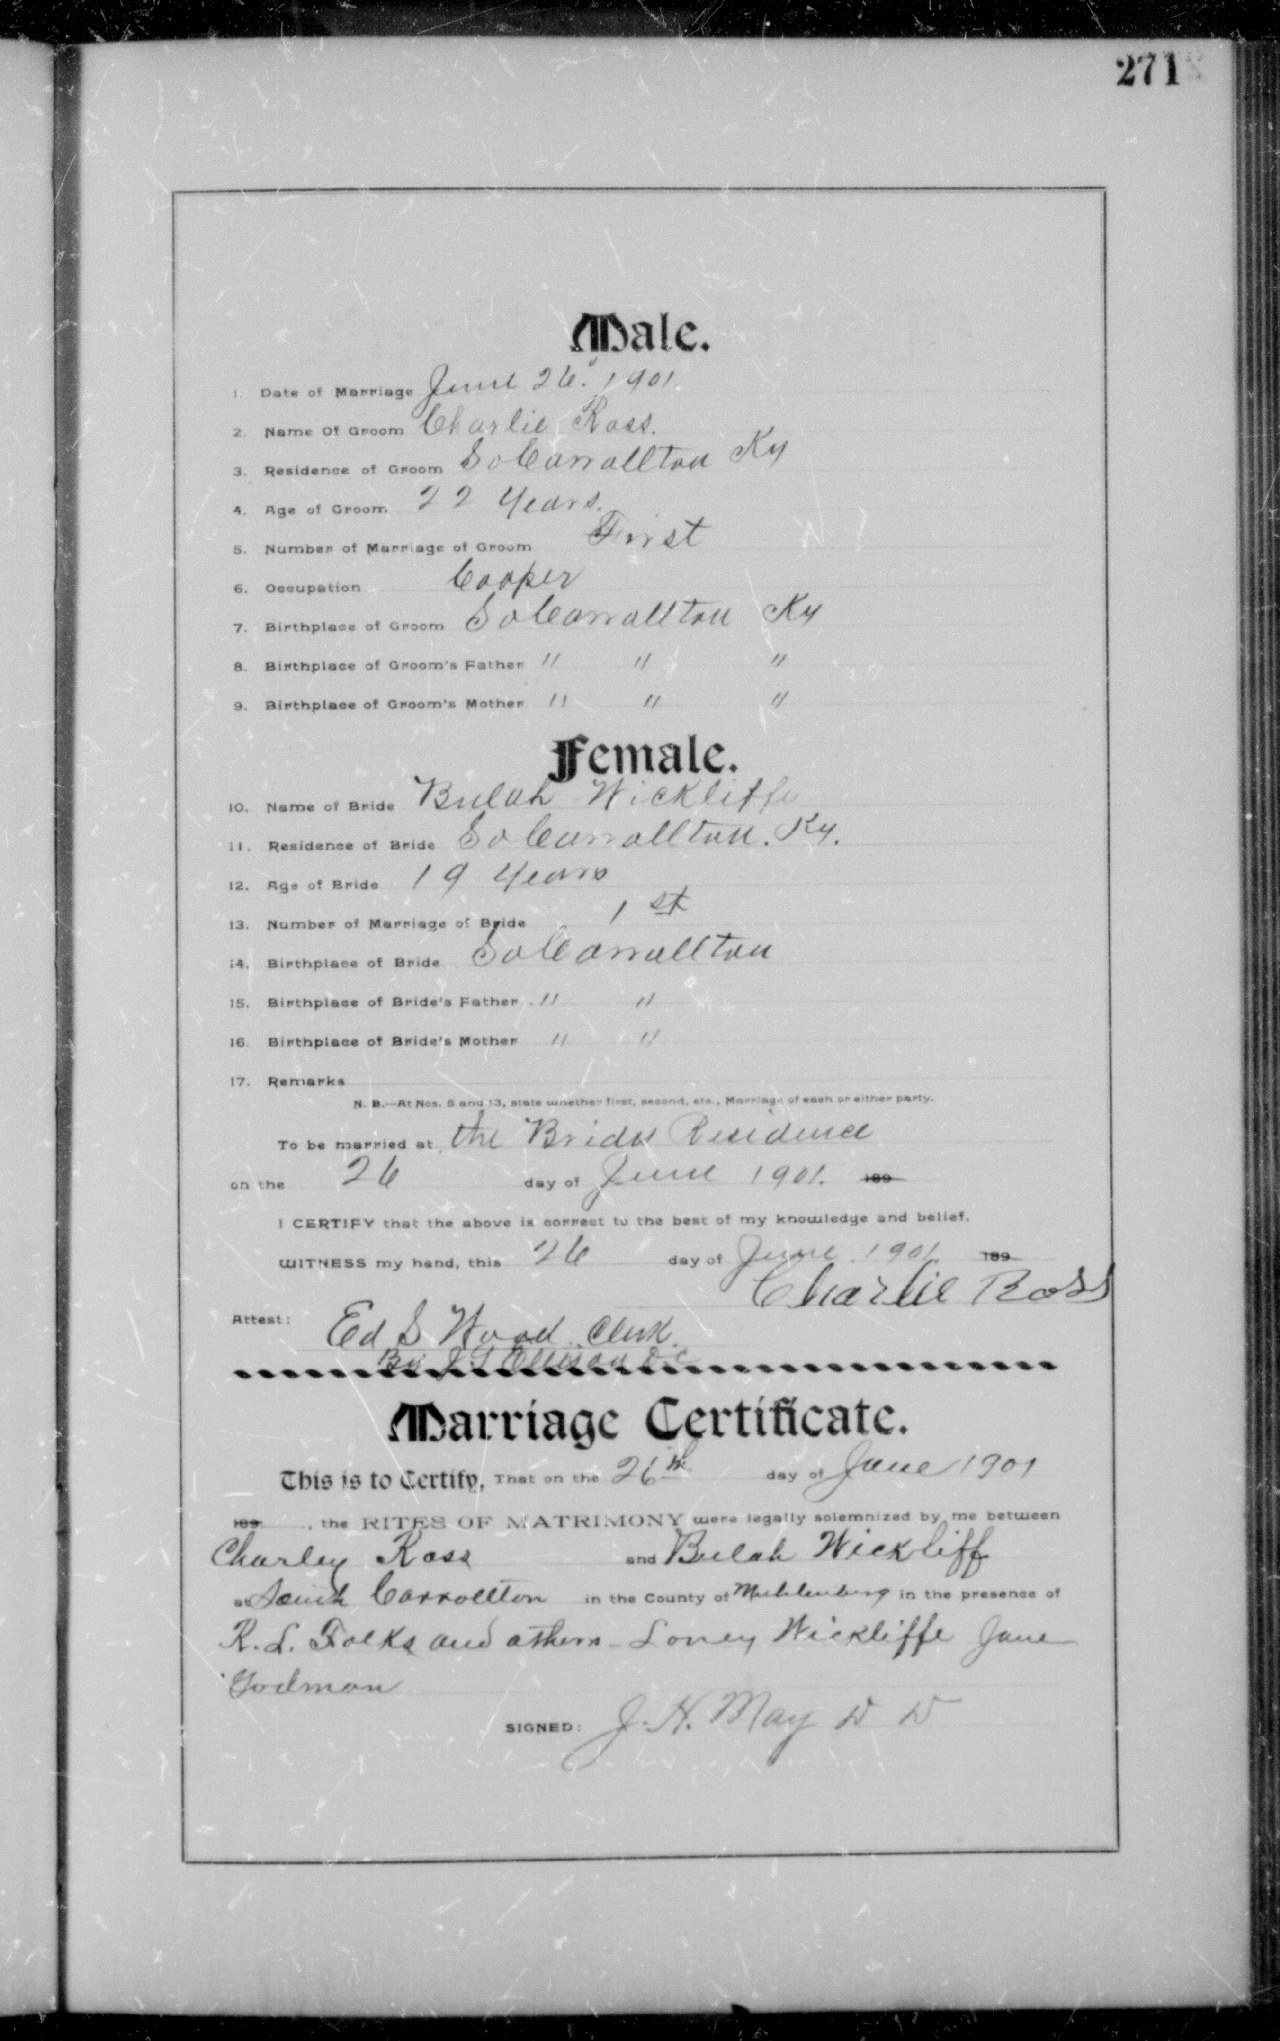 271
Male.
1. Date of Marriage June 26. 1901.
2. Name Of Groom Charlie Ross.
3. Residence of Groom So Carrollton Ky
4. Age of Groom 22 Years.
5. Number of Marriage of Groom First
6. Occupation Cooper
7. Birthplace of Groom So Carrollton Ky
8. Birthplace of Groom's Father " " "
9. Birthplace of Groom's Mother " " "
Female.
10. Name of Bride Bulah Wickliffe
11. Residence of Bride So Carrollton. Ky.
12. Age of Bride 19 Years
13. Number of Marriage of Bride 1st
14. Birthplace of Bride So Carrollton
15. Birthplace of Bride's Father " "
16. Birthplace of Bride's Mother " "
17. Remarks
N. B.—At Nos. 5 and 13, state whether first, second, etc., Marriage of each or either party.
To be married at the Brides Residence
on the 26 day of June 1901. 189
I CERTIFY that the above is correct to the best of my knowledge and belief.
WITNESS my hand, this 26 day of June 1901 189
Charlie Ross
Attest: Ed S Wood Clerk.
By J. T. Ellison D C
Marriage Certificate.
This is to Certify, That on the 26th day of June 1901
189 , the RITES OF MATRIMONY were legally solemnized by me between
Charley Ross and Bulah Wickliff
at South Carrollton in the County of Muhlenburg in the presence of
R. L. Folks and others - Loney Wickliffe Jane
Yodman
SIGNED: J. H. May D D